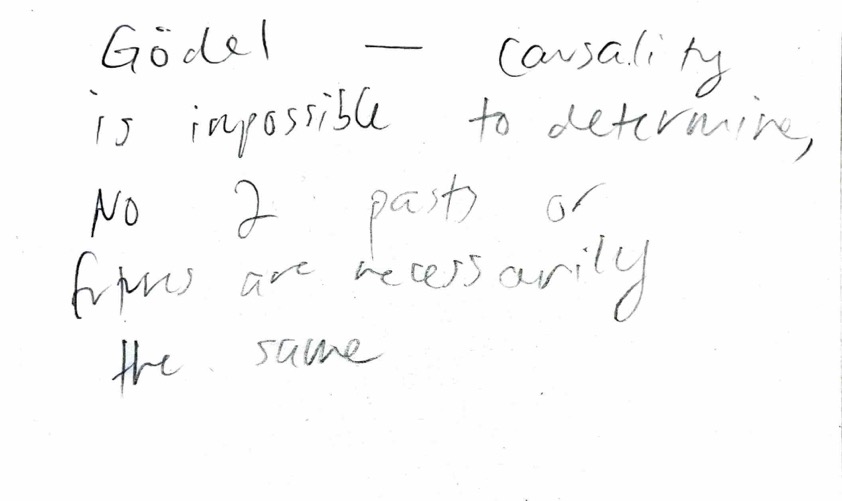 Gödel — Causality
is impossible to determine,
No 2 pasts or
futures are necessarily
the same